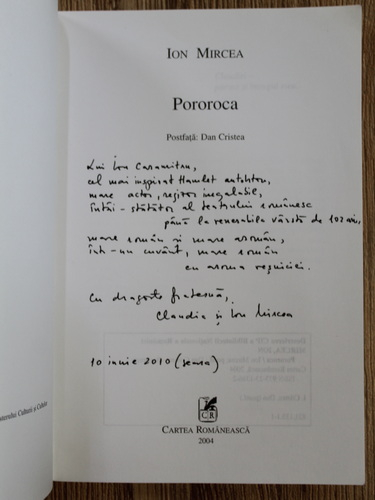 ION MIRCEA
Pororoca
Postfață: Dan Cristea
Lui Ion Caramitru,
cel mai inspirat Hamlet autohton,
mare actor, regizor inegalabil,
întâi-stătător al teatrului românesc
până la venerabila vârstă de 102 ani,
mare român și mare aromân,
într-un cuvânt, mare român
cu aroma veșniciei.
Cu dragoste frățească,
Claudia și Ion Mircea
10 iunie 2010 (seara)
CR
CARTEA ROMÂNEASCĂ
2004